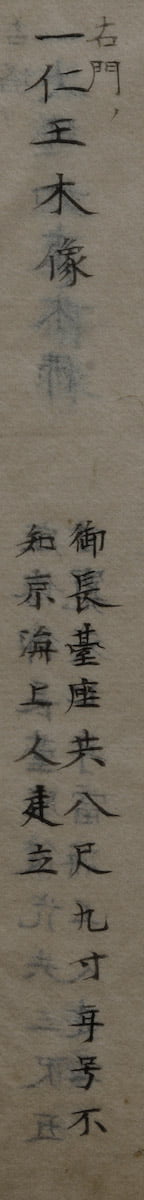 右門、
一仁王木像
御長臺座共八尺九寸年号不
知京海上人建立